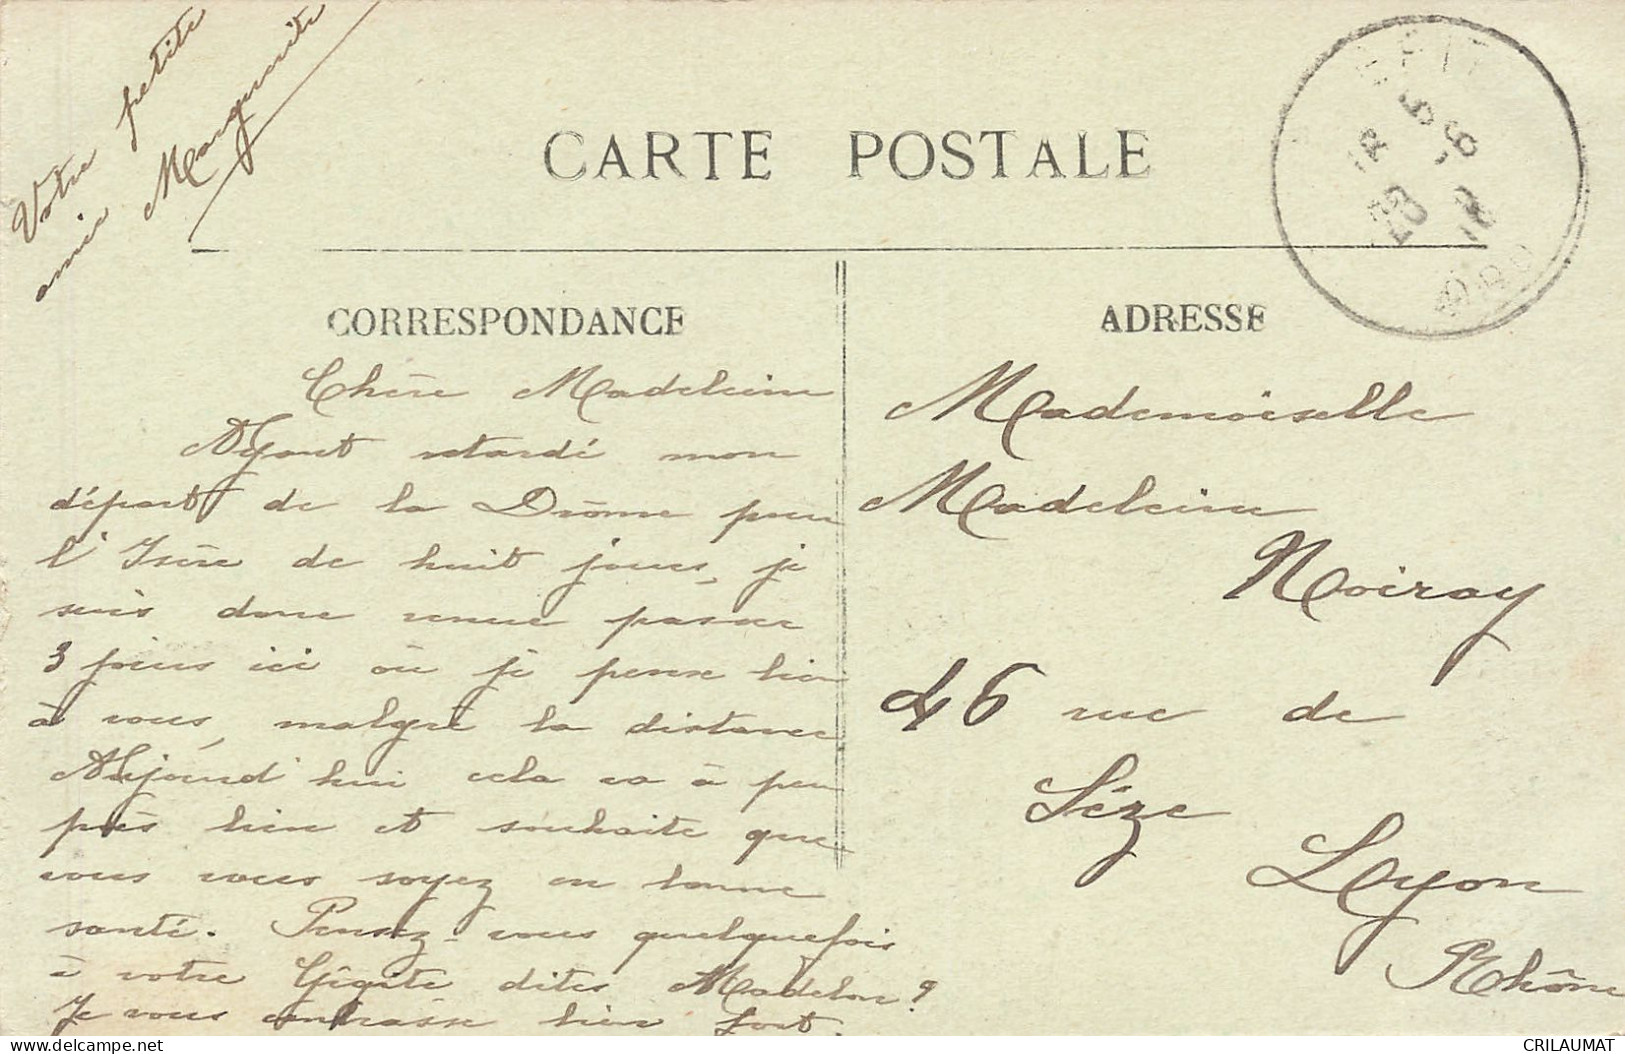 Votre petite
amie Marguerite
CARTE POSTALE
CORRESPONDANCE
Chère Madeleine
Ayant retardé mon
départ de la Drôme pour
l'Isère de huit jours, je
suis donc venue passer
3 jours ici où je pense bien
à vous, malgré la distance
Aujourd'hui cela va à peu
près bien et souhaite que
vous vous soyez en bonne
santé. Pensez-vous quelquefois
à votre Gégite dites Madelon?
Je vous embrasse bien fort.
ADRESSE
Mademoiselle
Madeleine
Noiray
46 rue de
Sèze
Lyon
Rhône
CRILAUMAT